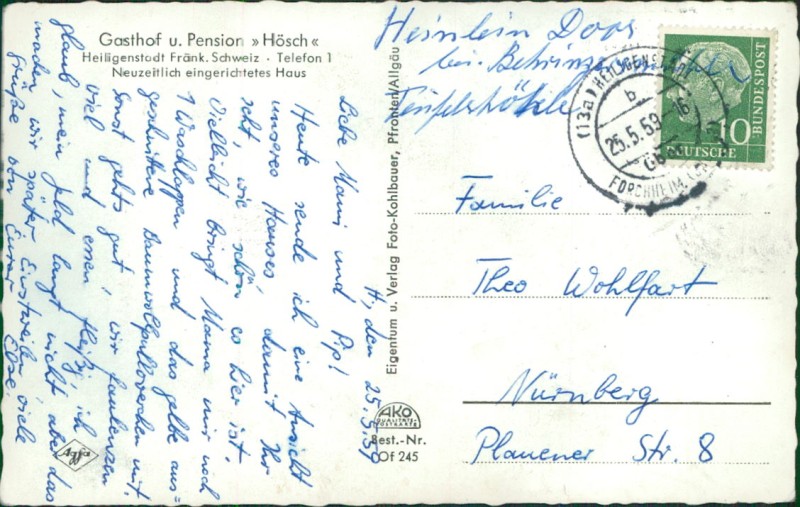 Gasthof u. Pension » Hösch «
Heiligenstadt Fränk. Schweiz · Telefon 1
Neuzeitlich eingerichtetes Haus
H, den 25.5.59
Liebe Mami und Pip!
Heute sende ich eine Ansicht
unseres Hauses damit Ihr
seht, wie schön es hier ist.
Vielleicht bringt Mama mir noch
1 Waschlappen und das gelbe aus=
geschnittene Baumwollpulloverchen mit.
Sonst geht's gut, wir faulenzen
viel und essen fleißig, ich
glaub, mein Geld langt nicht aber das
machen wir später. Einstweilen viele
Grüße von Eurer Else.
Eigentum u. Verlag Foto-Kohlbauer, Pfronten/Allgäu
Heinlein Doos
bei Behringersmühle
Teufelshöhle
(13a) HEILIGENSTADT
b
25.5.59.-16
FORCHHEIM
10
DEUTSCHE
BUNDESPOST
Familie
Theo Wohlfart
Nürnberg
Plauener Str. 8
AKO
QUALITÄTS-
POSTKARTE
Best.-Nr.
Of 245
Agfa